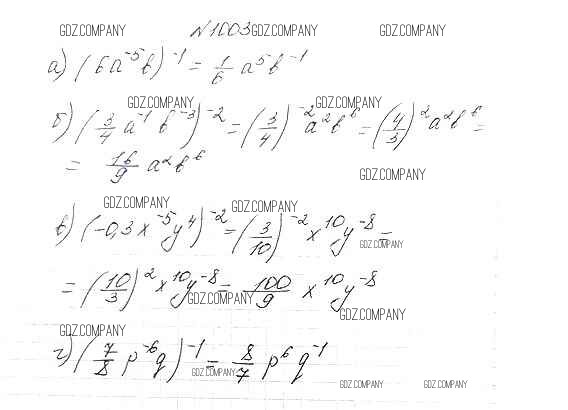 GDZ.COMPANY N1003 GDZ.COMPANY GDZ.COMPANY
а) (6a⁻⁵b)⁻¹ = 1/6 a⁵b⁻¹
GDZ.COMPANY GDZ.COMPANY
б) (3/4 a⁻¹ b⁻³)⁻² = (3/4)⁻² a²b⁶ = (4/3)² a²b⁶ =
= 16/9 a²b⁶
GDZ.COMPANY
GDZ.COMPANY GDZ.COMPANY
в) (-0,3x⁻⁵y⁴)⁻² = (3/10)⁻² x¹⁰y⁻⁸ =
GDZ.COMPANY
= (10/3)² x¹⁰y⁻⁸ = 100/9 x¹⁰y⁻⁸
GDZ.COMPANY
GDZ.COMPANY
GDZ.COMPANY
г) (7/8 p⁻⁶q)⁻¹ = 8/7 p⁶q⁻¹
GDZ.COMPANY
GDZ.COMPANY GDZ.COMPANY